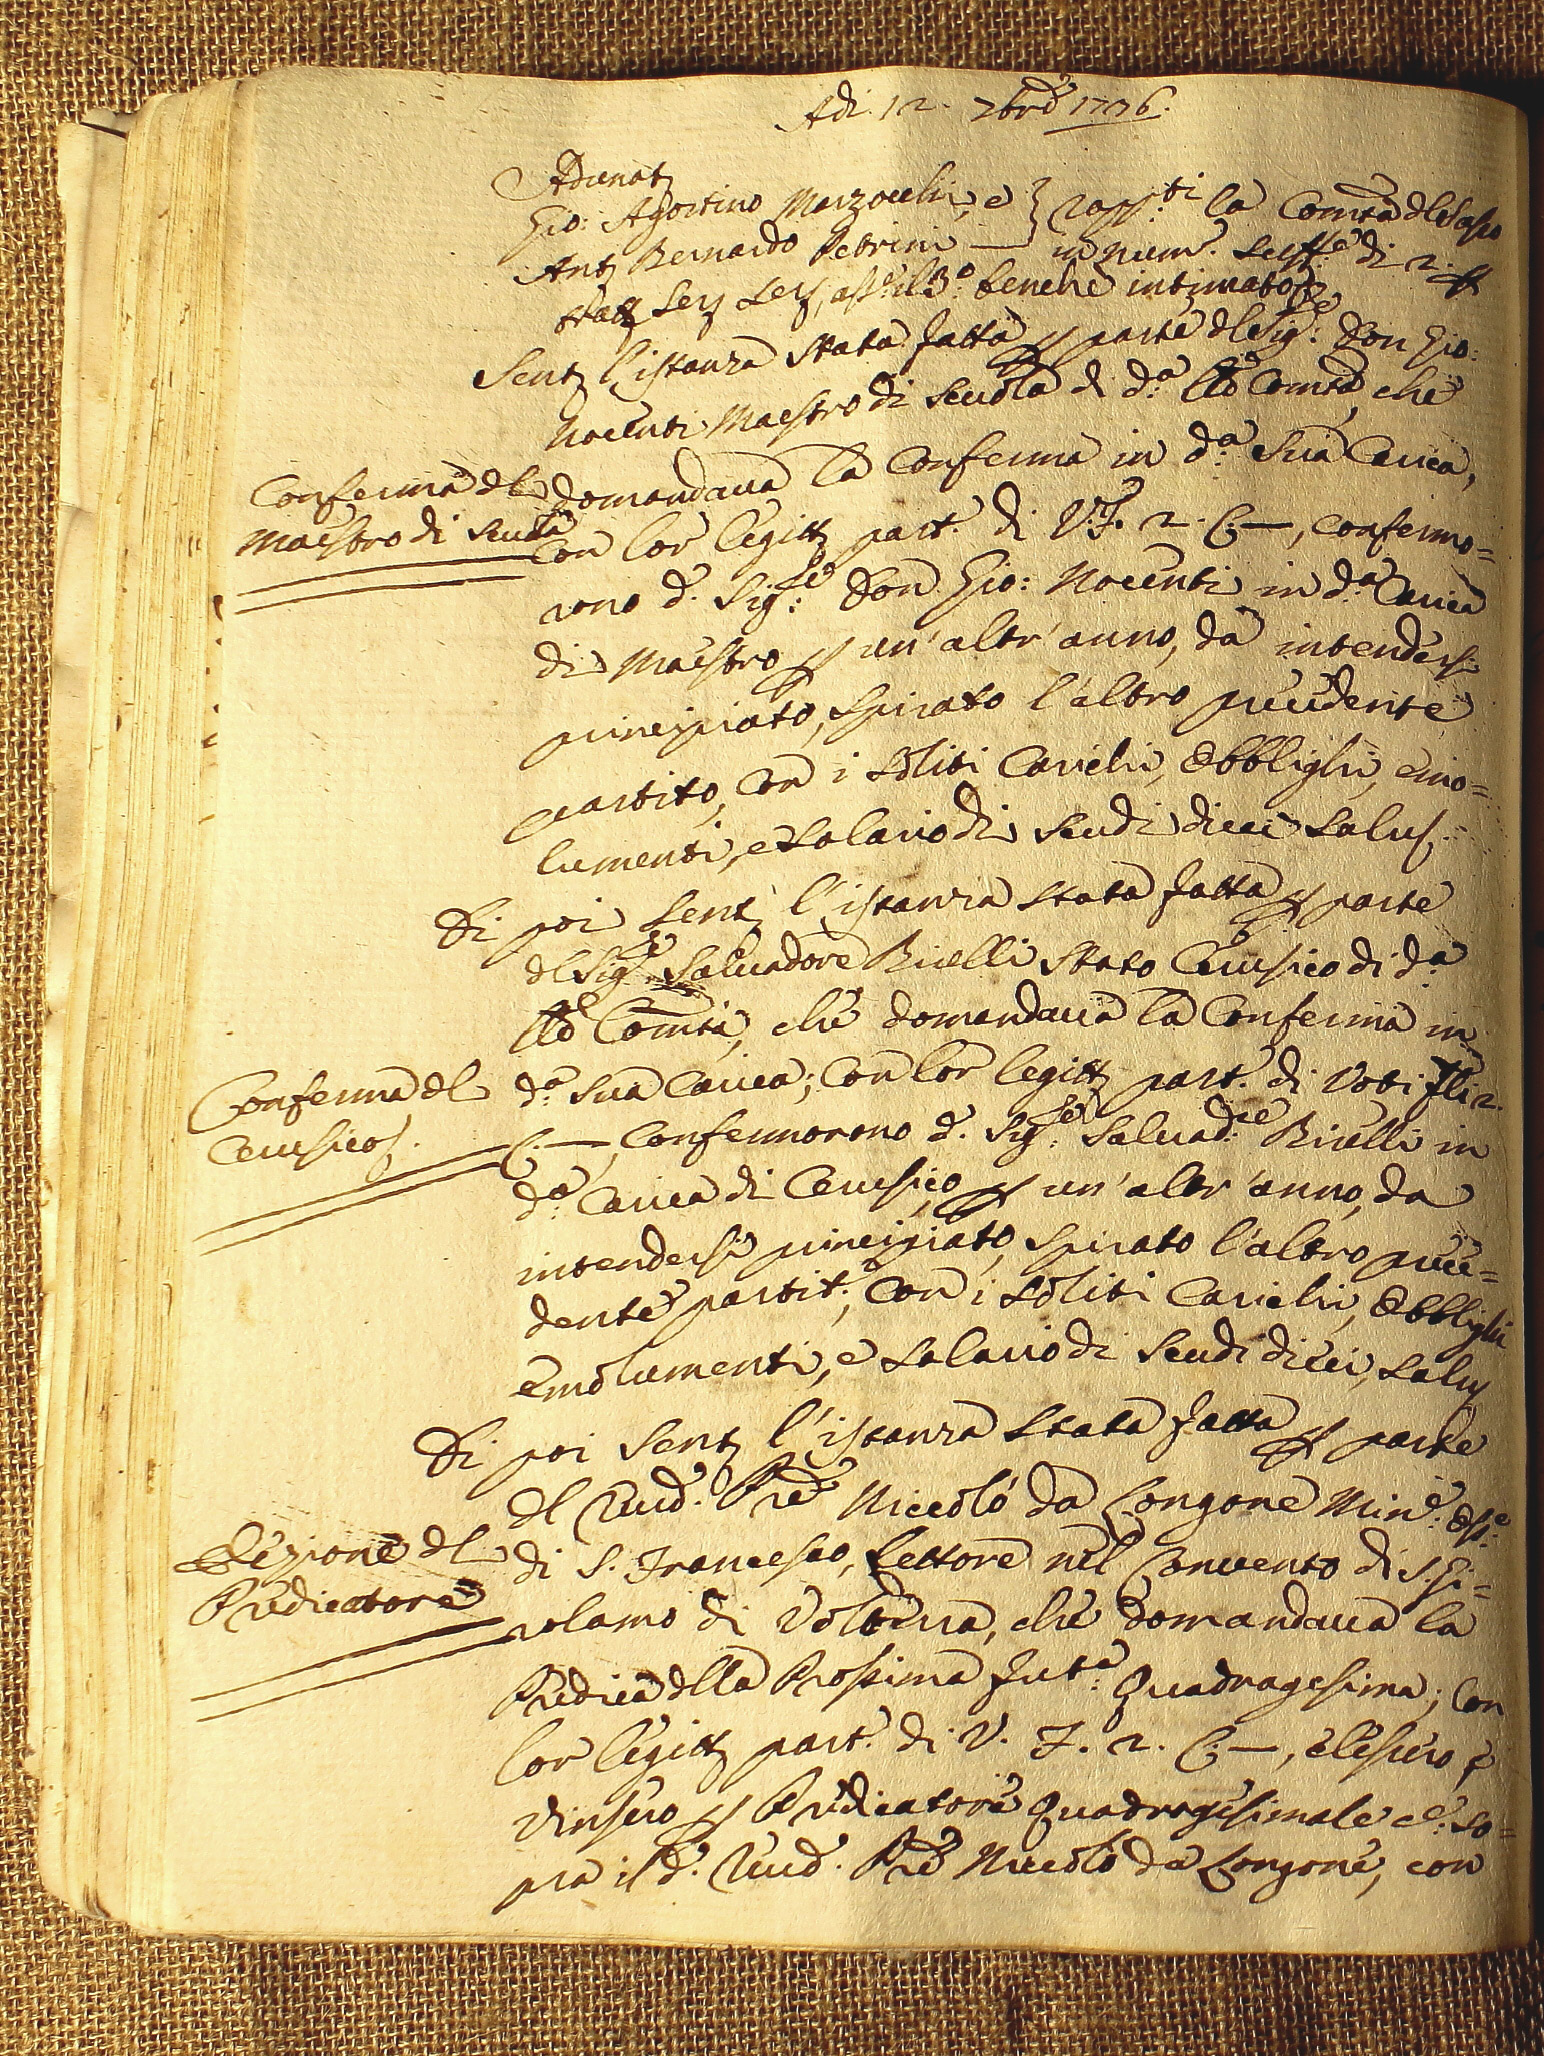 Adi. 12. 7bre 1736.
Adunati
Gio: Agostino Marzocchi, e } rapp:ti la Comtà del Sasso
Ant. Bernardo Petrini — in num.o suff:te di 2. p
Serv. Serv., ass:te il 3:o benche intimato
Sent. l'istanza stata fatta p parte del Sig:re Don Gio:
Nocenti Maestro di scuola di d:a Comtà, che
Conferma del
Maestro di Scuola
domandava la Conferma in d:a sua Carica,
con lor legitt. part.o di V.F. 2. C.—, confermo=
rono d. Sig:re Don Gio: Nocenti in d:a Carica
di Maestro p un'altr'anno, da intendersi
principiato, spirato l'altro precedente
partito, con i soliti Carichi, Obblighi, emo=
lumenti, e salario di scudi dieci salus.
Di poi sent. l'istanza stata fatta p parte
del Sig:re Salvadore Ricelli stato Cerusico di d:a
Comtà, che domandava la Conferma in
Conferma del
Cerusico.
d:a sua Carica; con lor legitt. part.o di Voti F.li 2.
C.—, Confermorono d. Sig:re Salvad:re Ricelli in
d:a Carica di Cerusico p un'altr'anno, da
intendersi principiato, spirato l'altro prece=
dente partit:o, con i soliti Carichi, Obblighi
emolumenti, e salario di scudi dieci, salus
Di poi sent. l'istanza stata fatta p parte
del Rud. Pre Niccolò da Longone Min:e Oss:e
Elezione del
Predicatore
di S. Francesco, Lettore nel Convento di S. Gi=
rolamo di Volterra, che domandava la
Predica della Prossima fut:a Quadragesima; con
lor legitt. part.o di V. F. 2. C.—, elessero, e
vinsero p Predicatore Quadragesimale c:e so=
pra il d:o Rud. Pre Niccolò da Longone, con